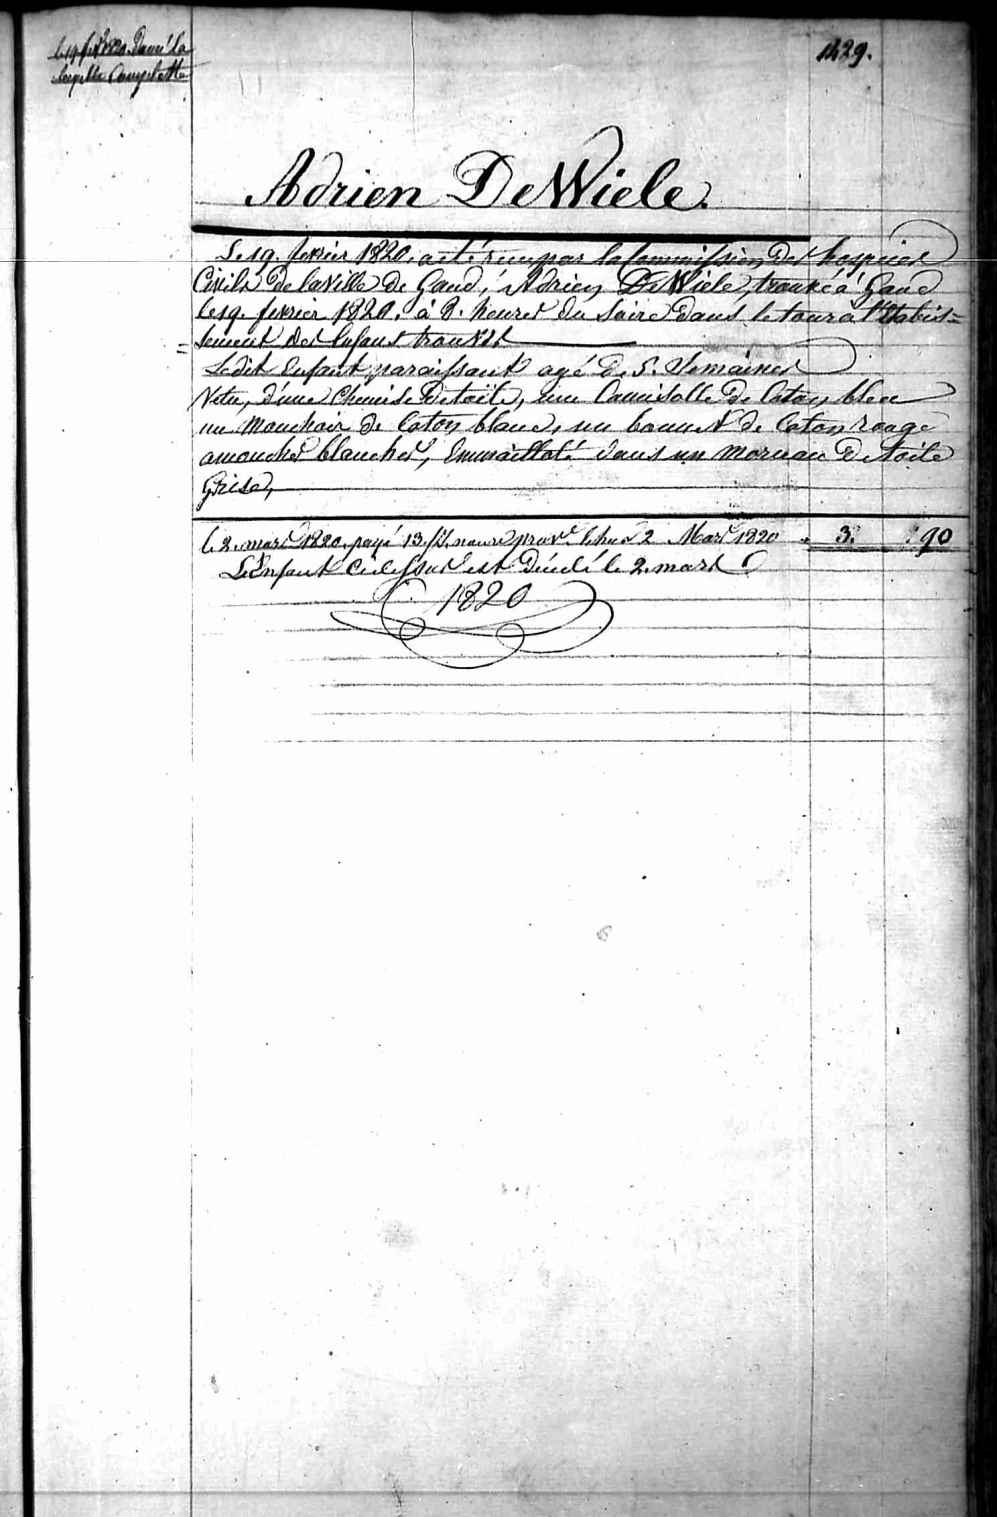 le 19. fev. 1820. Donné la
layette Complette
1429.
Adrien DeWiele.
Le 19. fevrier 1820. a eté reçu par la Commission des hospices
Civils de la Ville de Gand, Adrien DeWiele, trouvé à Gand
le 19. fevrier 1820. à 8. heures du Soire dans le tour a l'Etablis=
= sement des Enfans trouvés
Le dit Enfant paraissant agé de 5. Semaines
Vetu, d'une Chemise de toile, une Camisolle de Coton bleu
un Mouchoir de Coton blanc, un bonnet de Coton rouge
a mouches blanches, Emmailloté dans un morceau de toile
Grise,
le 2. mars 1820. payé 13. 2 Mars 1820 3. 90
L'Enfant Cidessus est Décédé le 2. mars
1820